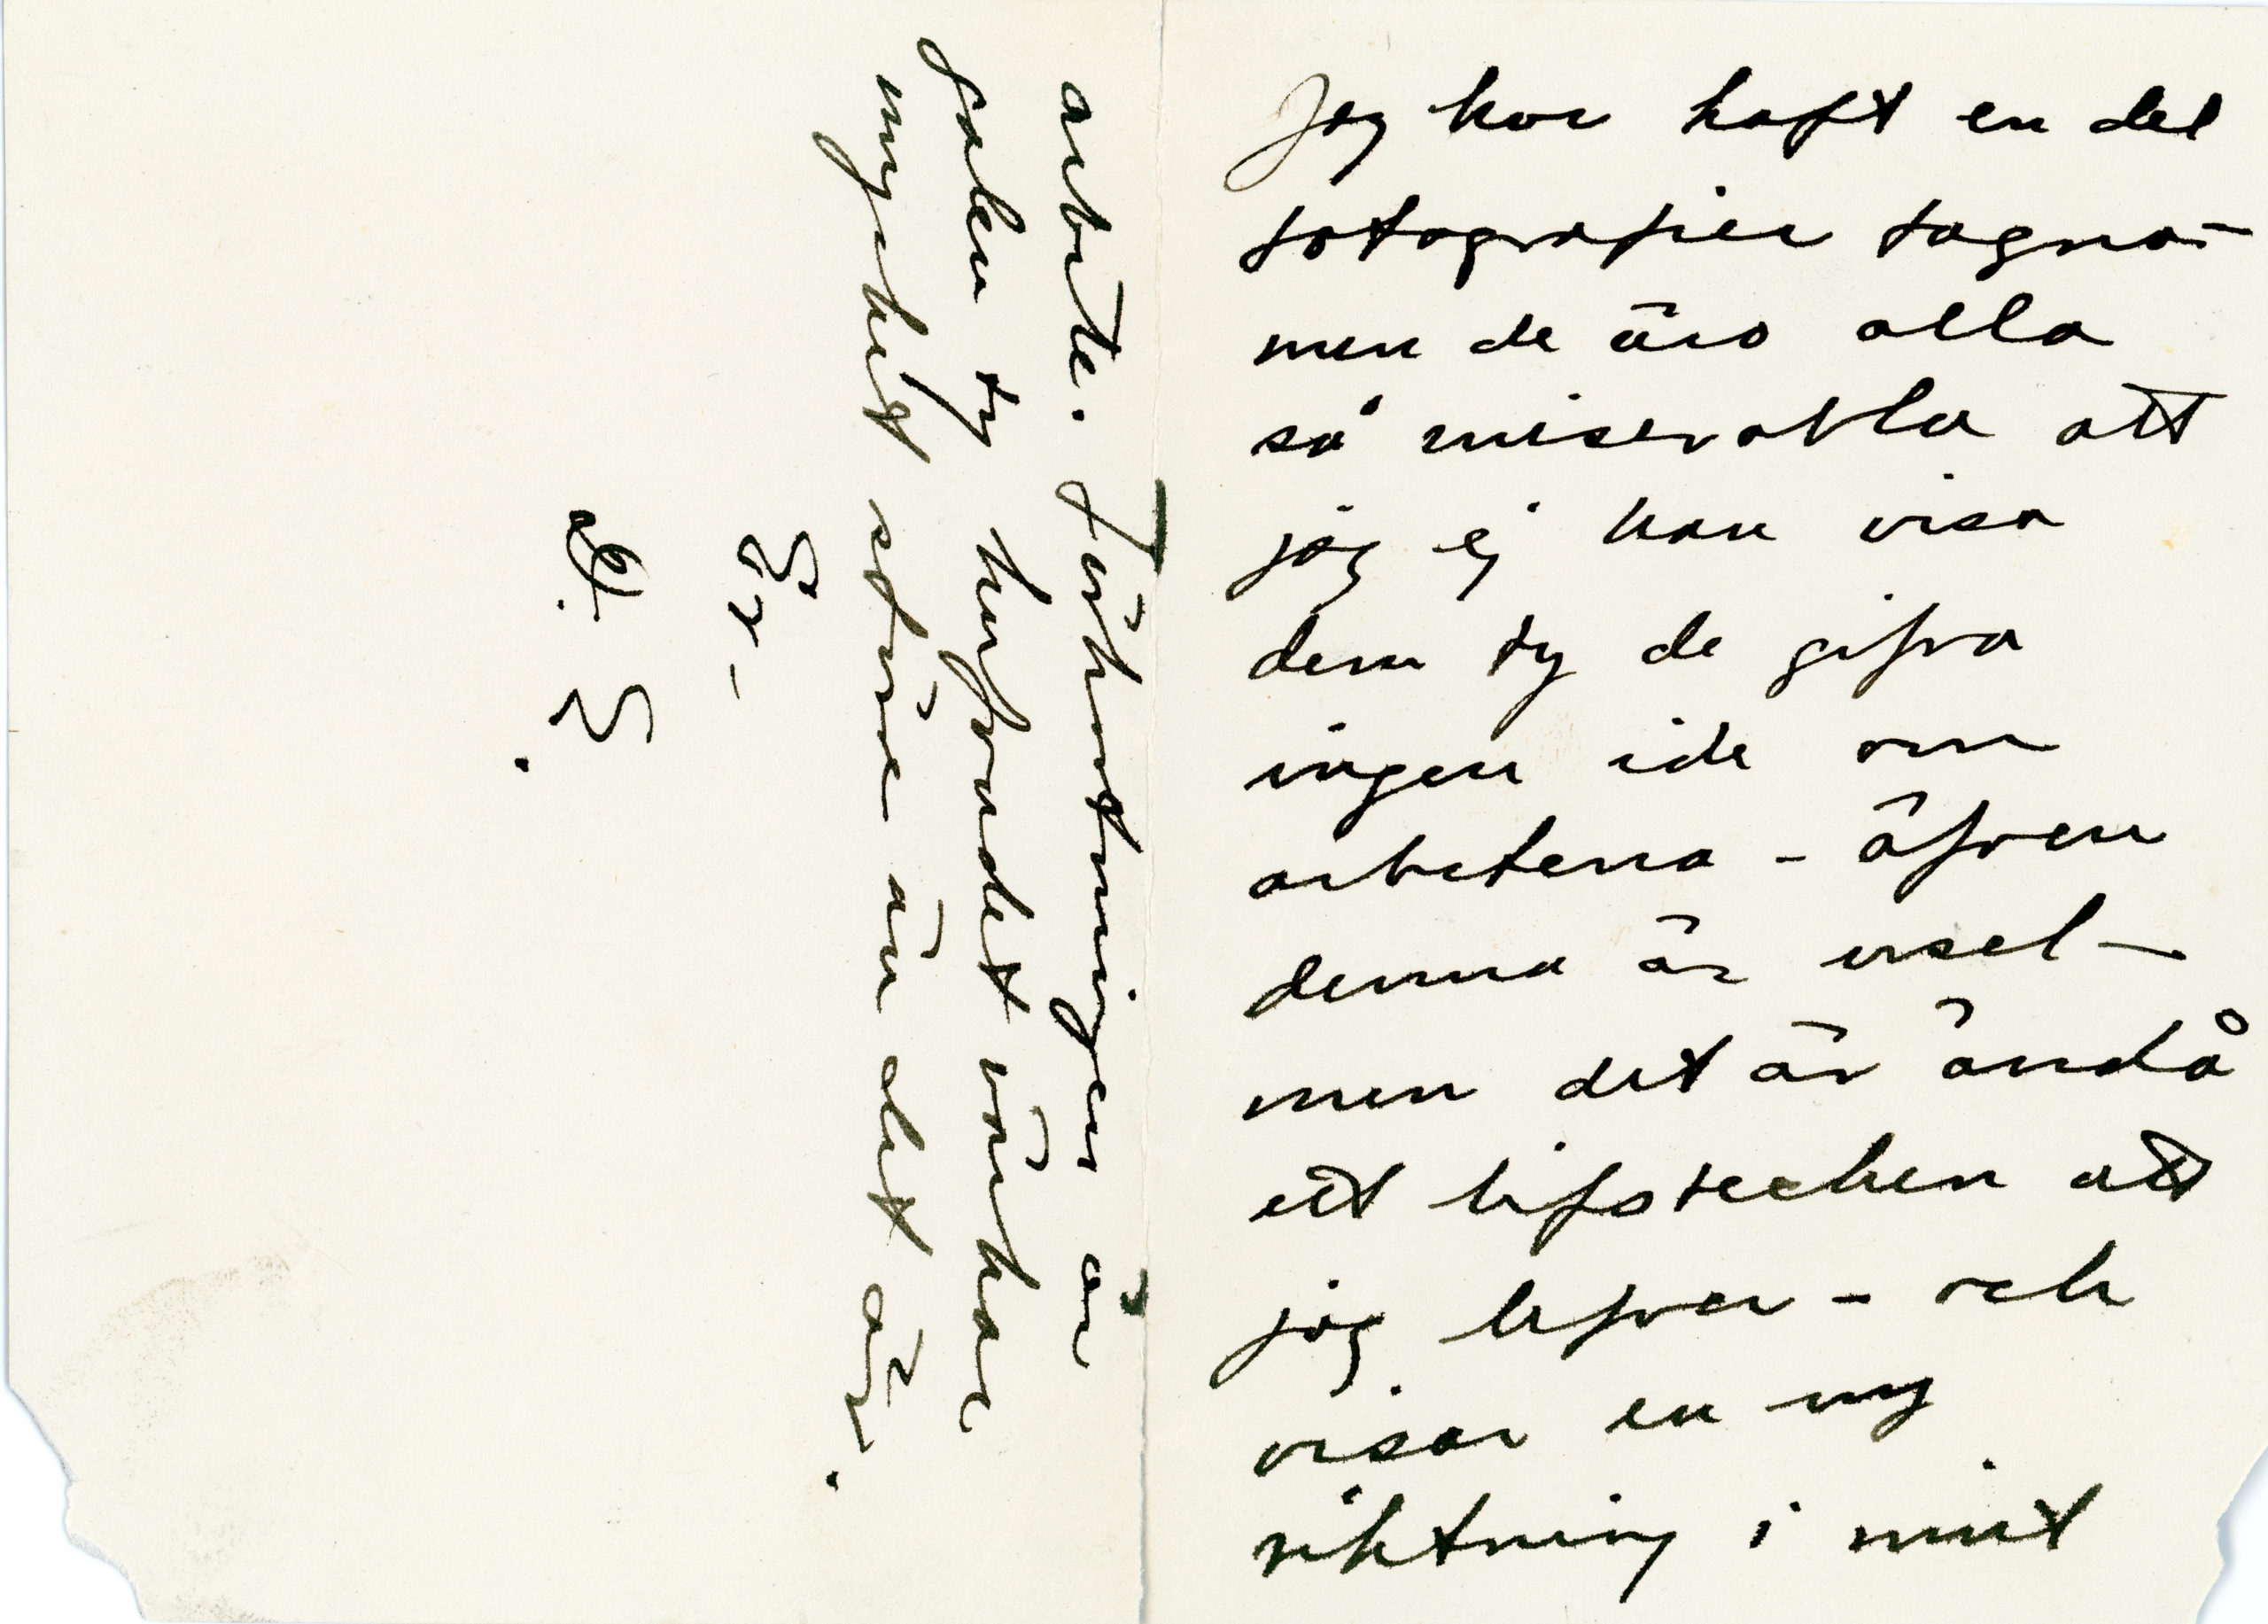 Jag har haft en del
fotografier tagna –
men de äro alla
så miserabla att
jag ej kan visa
dem ty de gifva
ingen ide om
arbetena – äfven
denna är usel –
men det är ändå
ett lifstecken att
jag lefver – och
visar en ny
riktning i mitt
arbete. Förkortningen är
galen ty hufvudet värkar
mycket större än det är.
Er –
D. E.